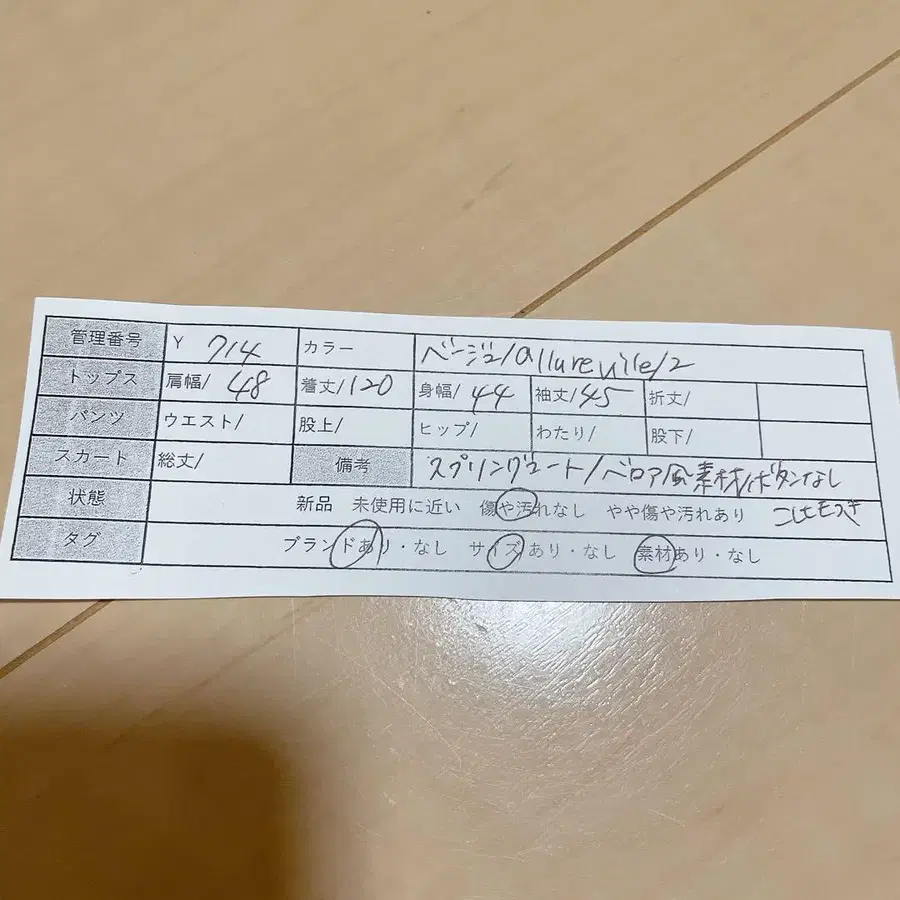 管理番号 Y 714 カラー ベージュ/allureville/2
トップス 肩幅/ 48 着丈/120 身幅/ 44 袖丈/45 折丈/
パンツ ウエスト/ 股上/ ヒップ/ わたり/ 股下/
スカート 総丈/ 備考 スプリングコート/ベロア風素材/ボタンなし
状態 新品 未使用に近い 傷や汚れなし やや傷や汚れあり
タグ ブランドあり・なし サイズあり・なし 素材あり・なし